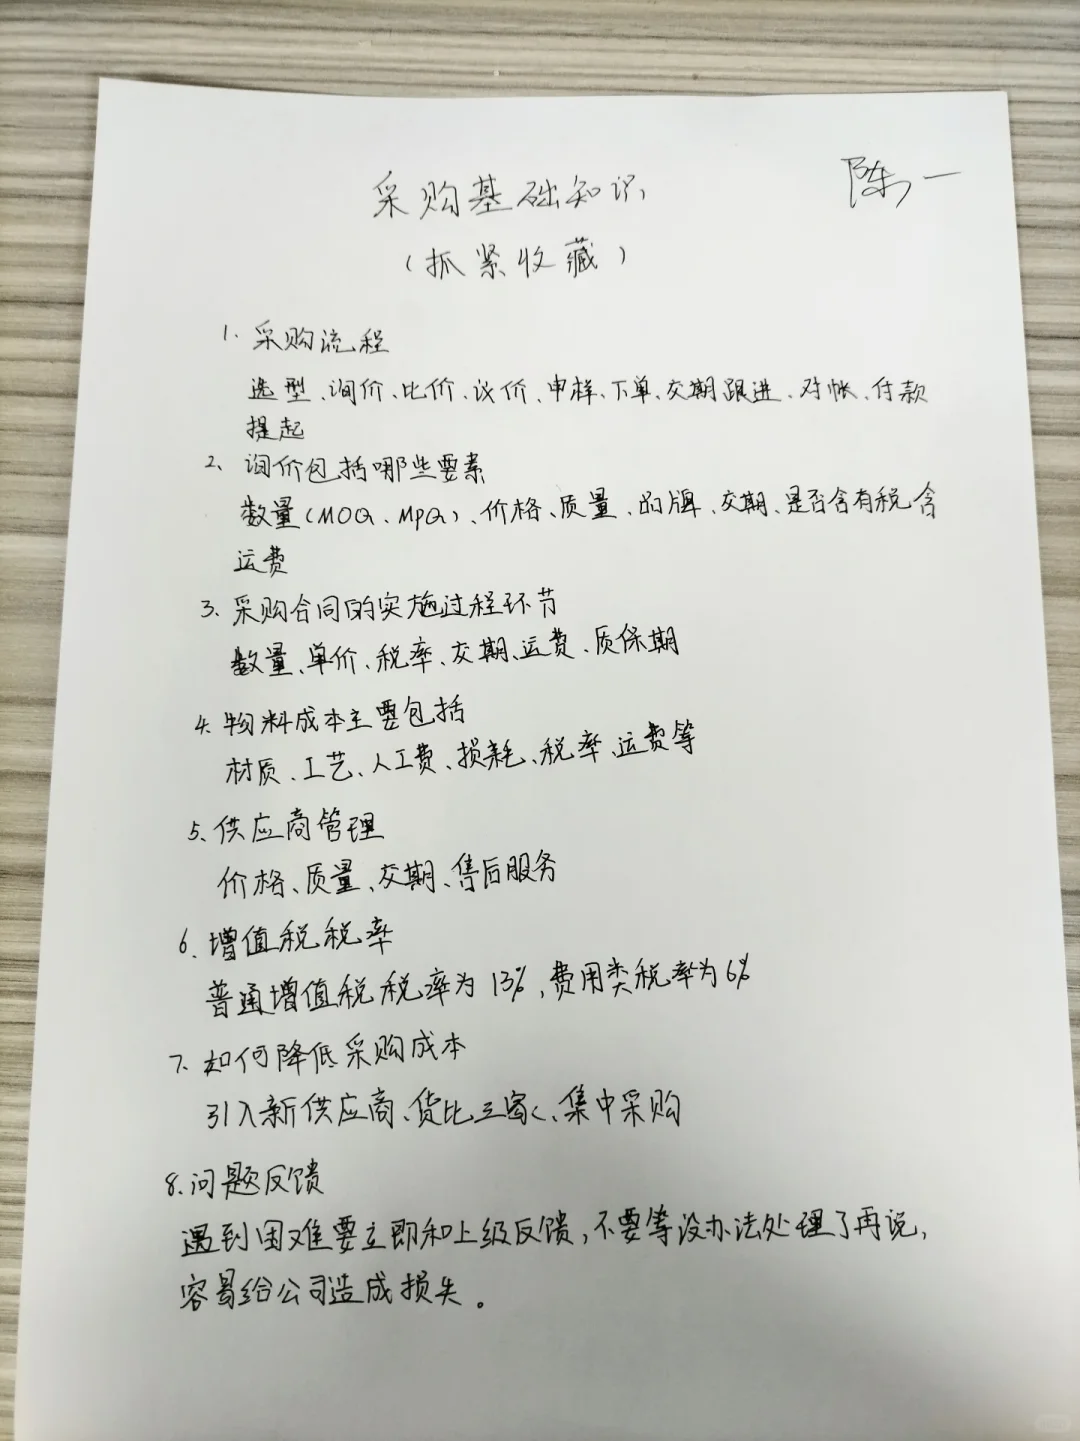 采购基础知识
陈一
（抓紧收藏）
1. 采购流程
选型、询价、比价、议价、申样、下单、交期跟进、对帐、付款
提起
2、询价包括哪些要素
数量(MOQ、MPQ)、价格、质量、品牌、交期、是否含有税含
运费
3、采购合同的实施过程环节
数量、单价、税率、交期、运费、质保期
4、物料成本主要包括
材质、工艺、人工费、损耗、税率、运费等
5、供应商管理
价格、质量、交期、售后服务
6、增值税税率
普通增值税税率为13%，费用类税率为6%
7、如何降低采购成本
引入新供应商、货比三家、集中采购
8、问题反馈
遇到困难要立即和上级反馈，不要等没办法处理了再说，
容易给公司造成损失。